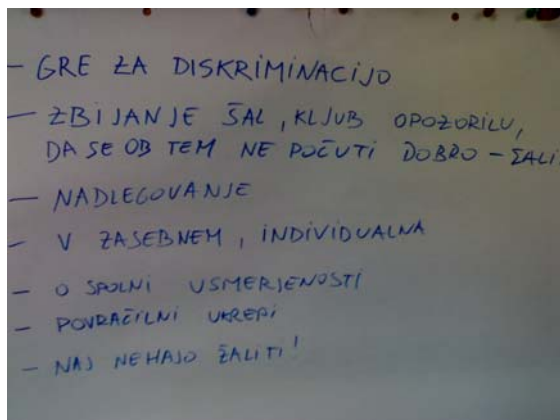 - GRE ZA DISKRIMINACIJO
- ZBIJANJE ŠAL, KLJUB OPOZORILU,
DA SE OB TEM NE POČUTI DOBRO - ŽALI
- NADLEGOVANJE
- V ZASEBNEM, INDIVIDUALNA
- O SPOLNI USMERJENOSTI
- POVRAČILNI UKREPI
- NAJ NEHAJO ŽALITI!